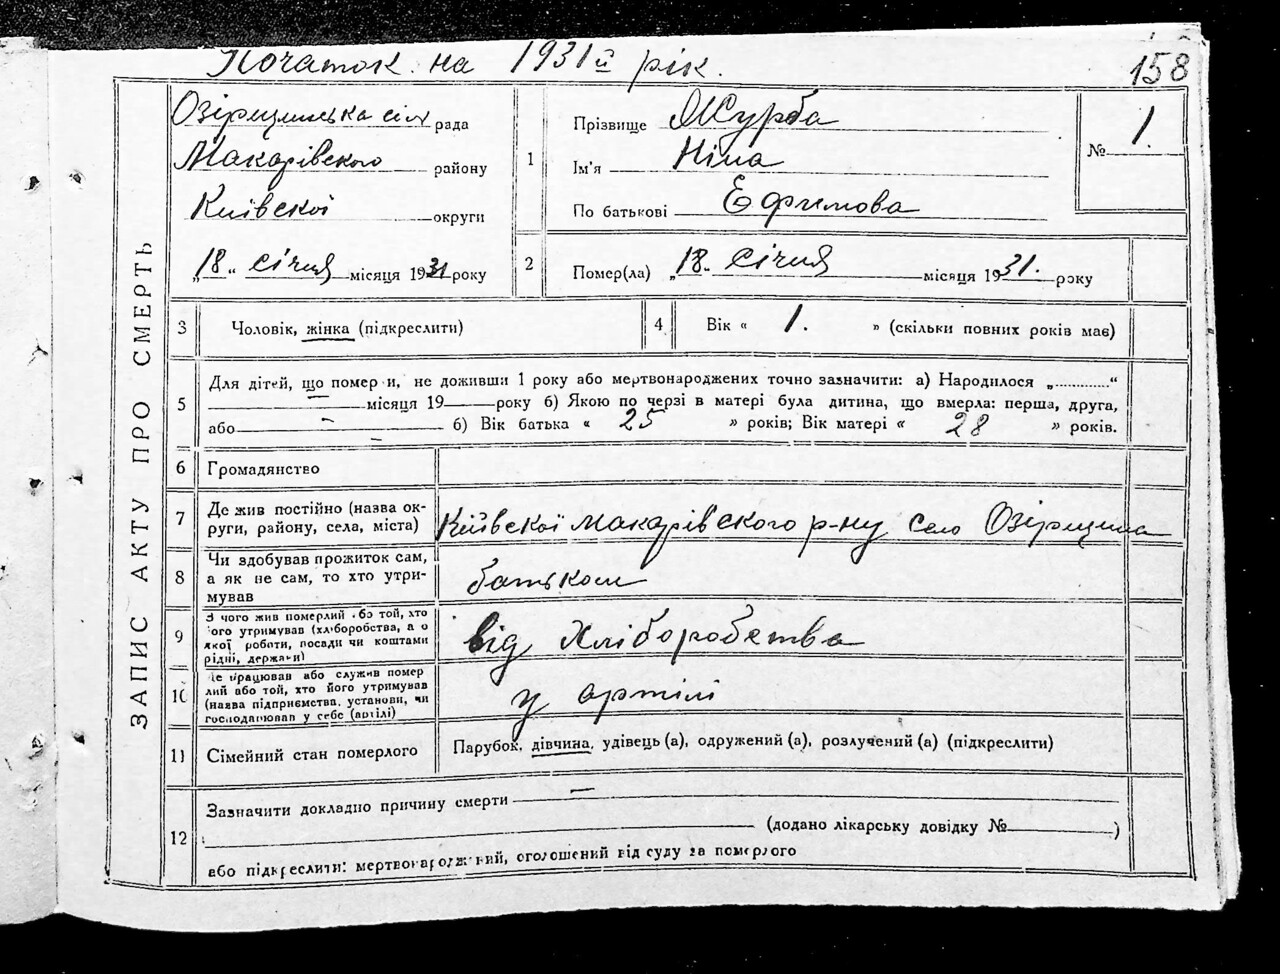 Початок на 1931й рік.
158
ЗАПИС АКТУ ПРО СМЕРТЬ
Озірщинська сіл рада
Макарівского району
Київскої округи
„18„ січня місяця 1931 року
1
Прізвище Журба
Ім'я Ніна
По батькові Ефимова
№ 1.
2
Помер(ла) „18„ січня місяця 1931. року
3 Чоловік, жінка (підкреслити)
4 Вік « 1. » (скільки повних років має)
5
Для дітей, що помер и, не доживши 1 року або мертвонароджених точно зазначити: а) Народилося „.............“
— місяця 19 року б) Якою по черзі в матері була дитина, що вмерла: перша, друга,
або — б) Вік батька « 25 » років; Вік матері « 28 » років.
6 Громадянство
7
Де жив постійно (назва ок-
руги, району, села, міста)
Київскої Макарівского р-ну село Озірщина
8
Чи здобував прожиток сам,
а як не сам, то хто утри-
мував
батьком
9
З чого жив померлий або той, хто
його утримував (хліборобства, а о
якої роботи, посади чи коштами
рідні, держави)
від Хліборобства
10
Де працював або служив помер
лий або той, хто його утримував
(назва підприємства, установи, чи
господарював у себе (артілі)
у артілі
11 Сімейний стан померлого
Парубок, дівчина, удівець (а), одружений (а), розлучений (а) (підкреслити)
12
Зазначити докладно причину смерти —
(додано лікарську довідку № )
або підкреслити: мертвонароджений, оголошений від суду за померлого